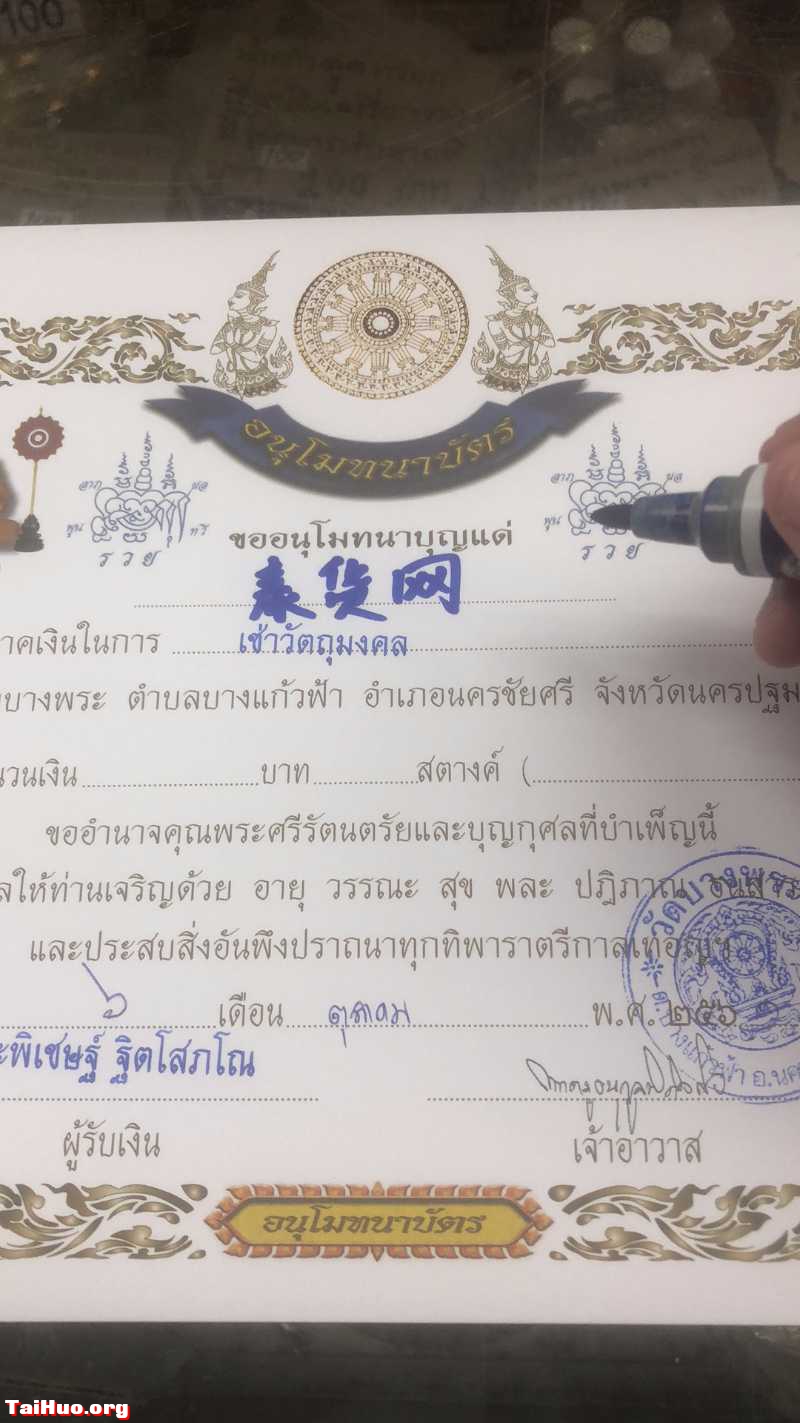 100
อนุโมทนาบัตร
ลาภ ผล
พูน ทวี
ร ว ย
ลาภ ผล
พูน
ร ว ย
ขออนุโมทนาบุญแด่
泰货网
าคเงินในการ เช่าวัตถุมงคล
บางพระ ตำบลบางแก้วฟ้า อำเภอนครชัยศรี จังหวัดนครปฐม
นวนเงิน บาท สตางค์ (
ขออำนาจคุณพระศรีรัตนตรัยและบุญกุศลที่บำเพ็ญนี้
ลให้ท่านเจริญด้วย อายุ วรรณะ สุข พละ ปฏิภาณ
และประสบสิ่งอันพึงปรารถนาทุกทิพาราตรีกาลเทอญฯ
วัดบางพระ
๖ เดือน ตุลาคม พ.ศ. ๒๕๖
ะพิเชษฐ์ ฐิตโสภโณ
ผู้รับเงิน เจ้าอาวาส
อนุโมทนาบัตร
TaiHuo.org